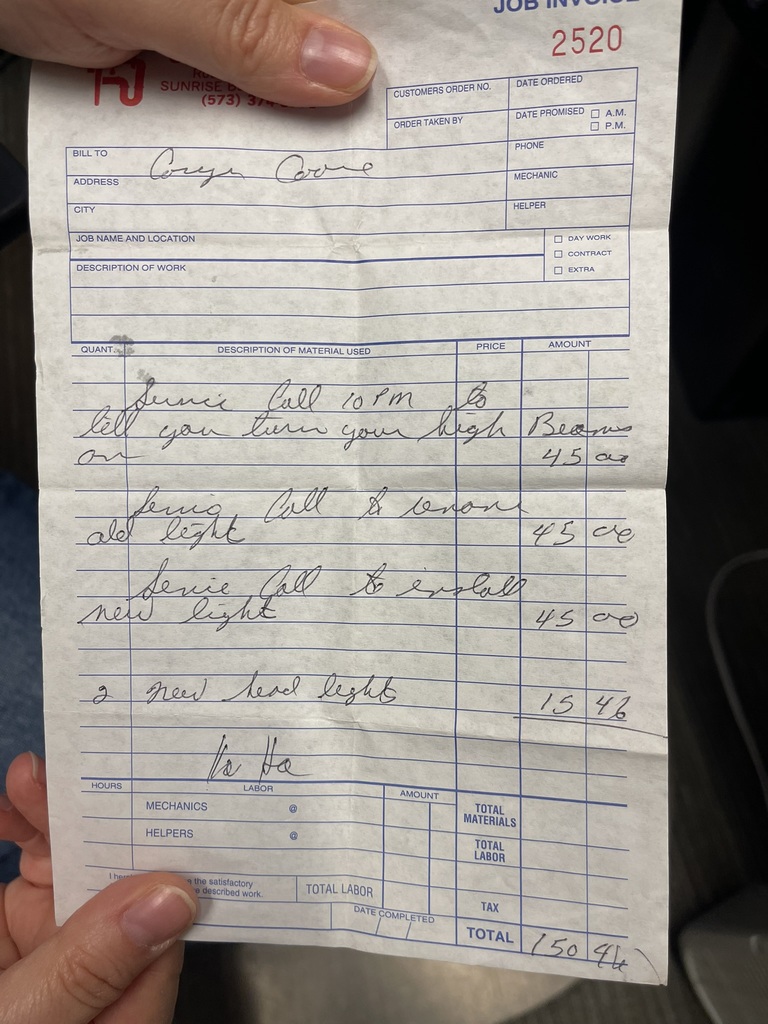 JOB INVOICE
2520
SUNRISE B
(573) 374
CUSTOMERS ORDER NO.
DATE ORDERED
ORDER TAKEN BY
DATE PROMISED
A.M.
P.M.
BILL TO
PHONE
ADDRESS
MECHANIC
CITY
HELPER
JOB NAME AND LOCATION
DAY WORK
CONTRACT
EXTRA
DESCRIPTION OF WORK
QUANT. DESCRIPTION OF MATERIAL USED PRICE AMOUNT
Service Call 10 PM to
tell you turn your high Beams
on 45 00
Service Call to remove
old light 45 00
Service Call to install
new light 45 00
2 new head lights 15 46
Ha Ha
HOURS LABOR AMOUNT
MECHANICS @
TOTAL MATERIALS
HELPERS @
TOTAL LABOR
the satisfactory
described work.
TOTAL LABOR
TAX
DATE COMPLETED
TOTAL 150 46